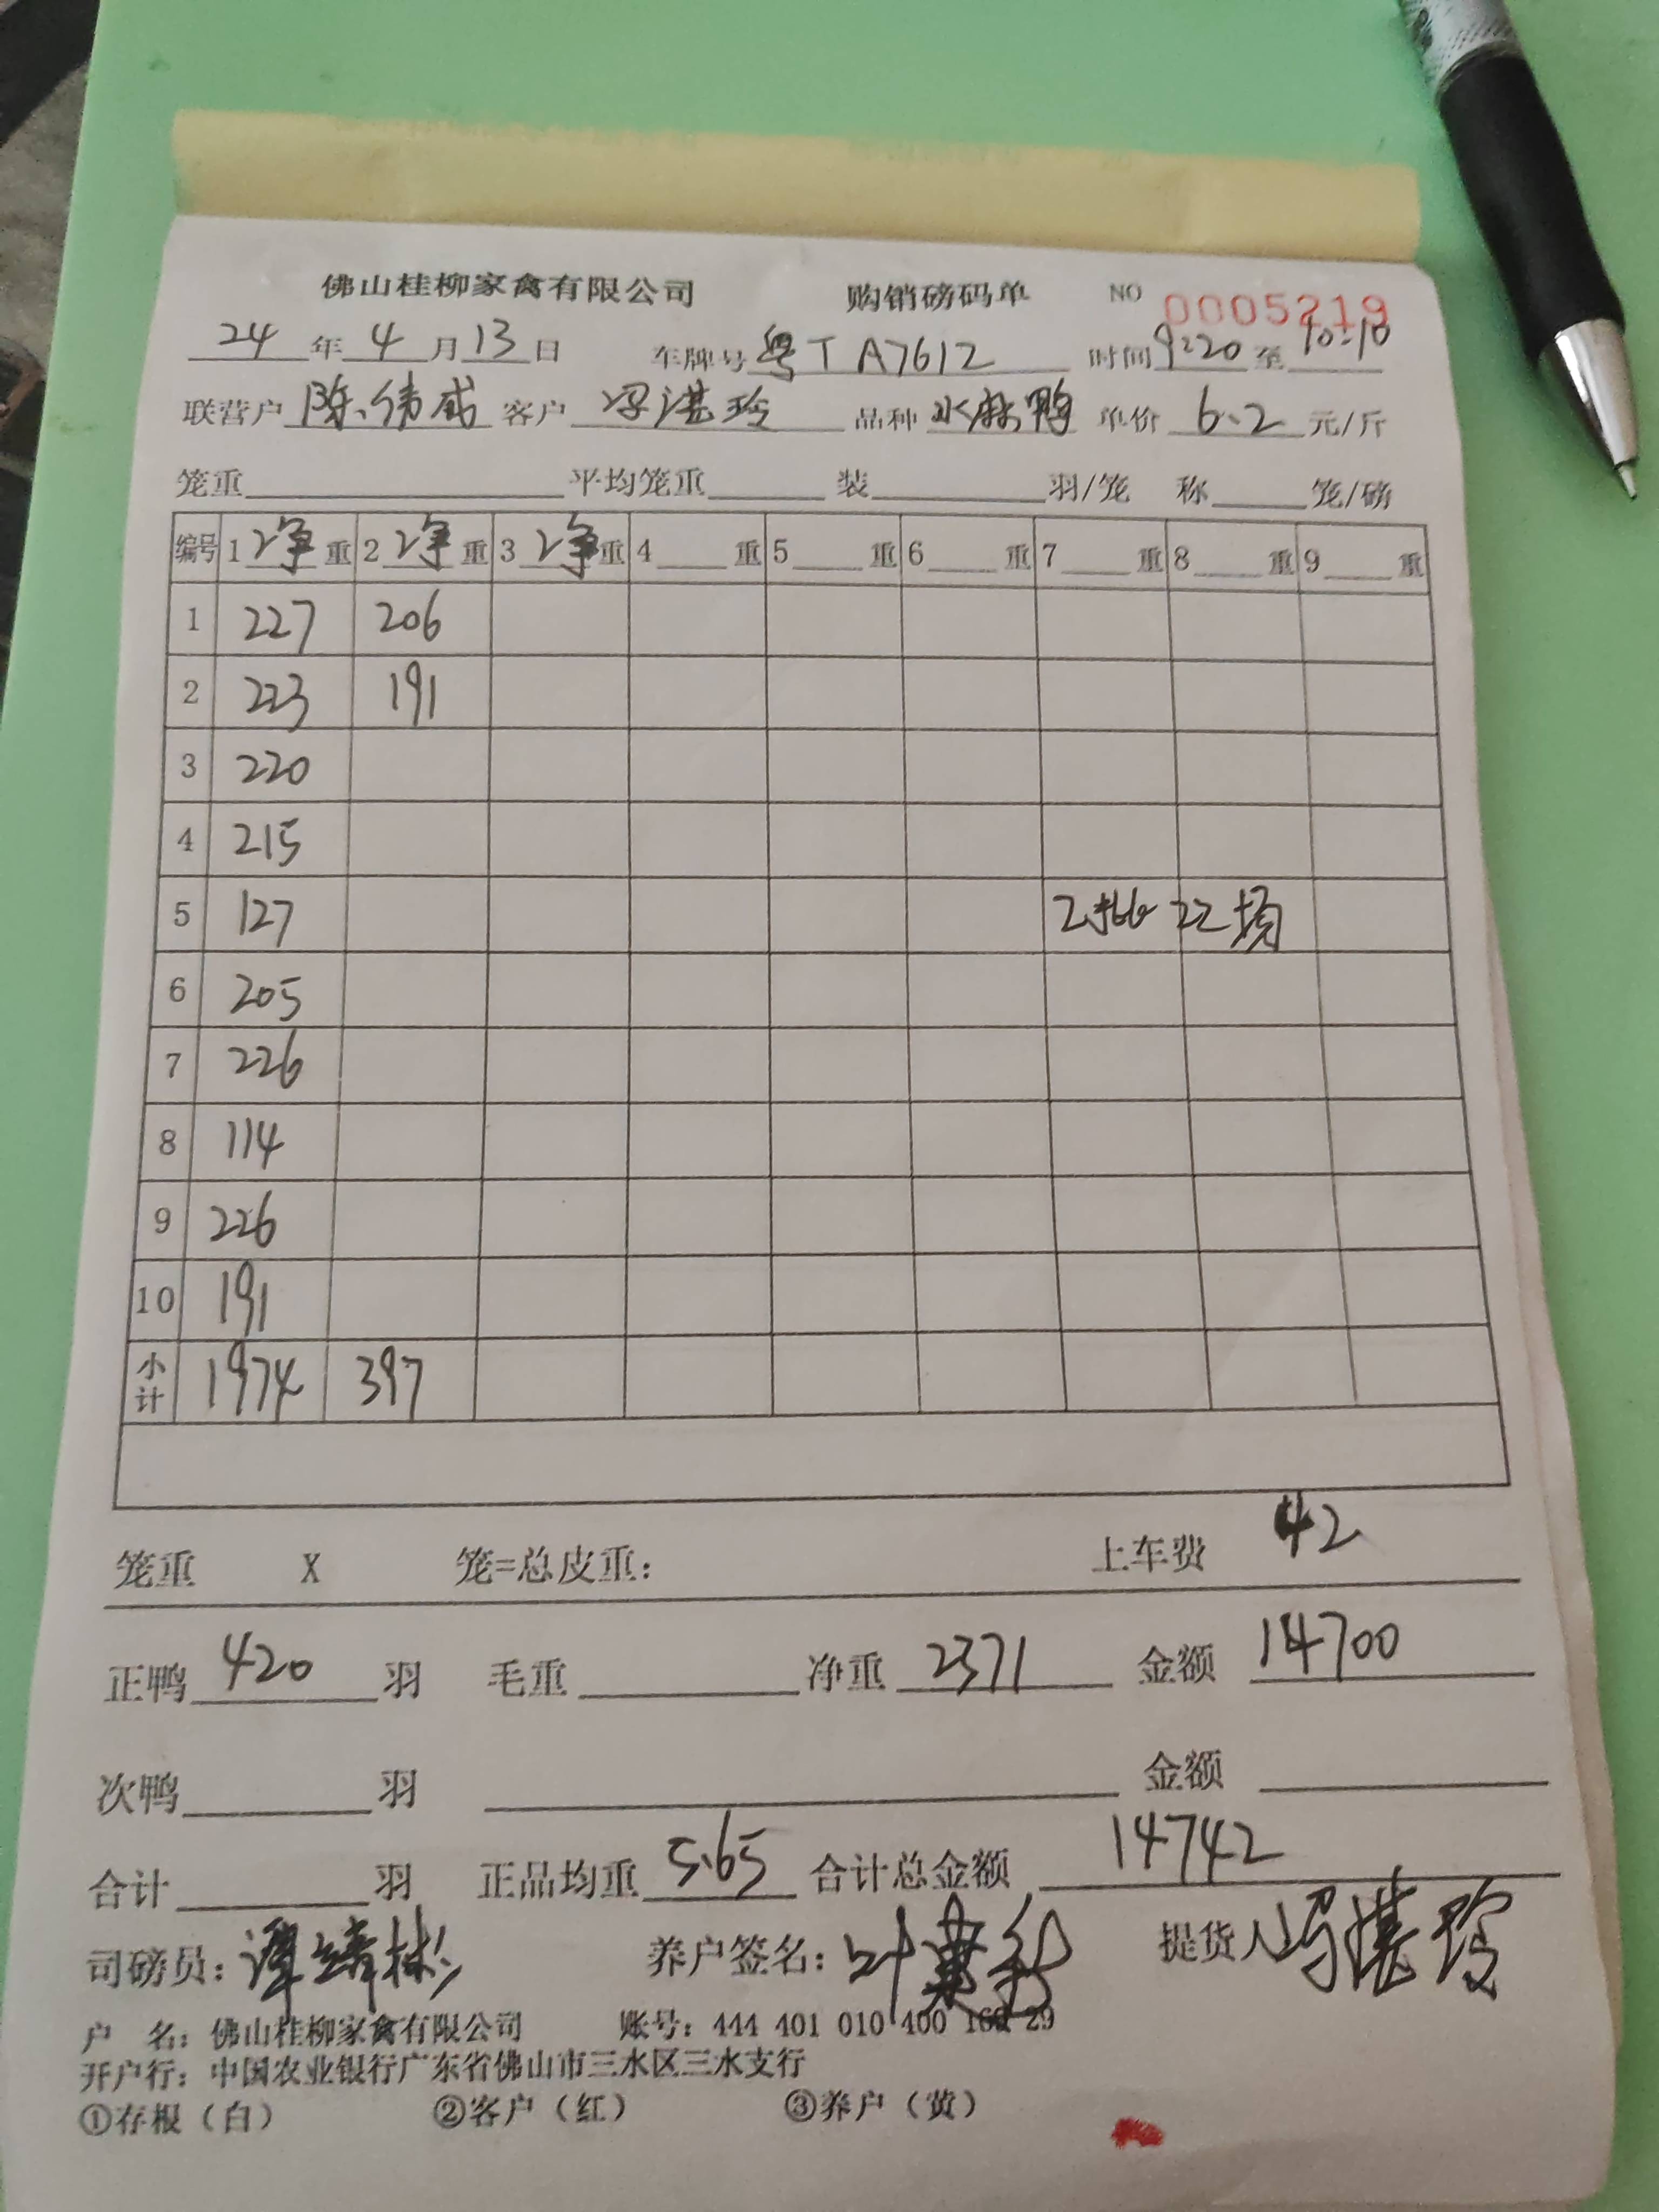 佛山桂柳家禽有限公司 购销磅码单 NO 0005219
24年4月13日 车牌号 粤TA7612 时间 9:20 至 10:10
联营户 陈伟成 客户 冯湛玲 品种 水麻鸭 单价 6.2 元/斤
笼重 平均笼重 装 羽/笼 称 笼/磅
编号 1 净 重 2 净 重 3 净 重 4 重 5 重 6 重 7 重 8 重 9 重
1 227 206
2 223 191
3 220
4 215
5 127 22场
6 205
7 226
8 114
9 226
10 191
小计 1974 397
笼重 X 笼=总皮重: 上车费 42
正鸭 420 羽 毛重 净重 2371 金额 14700
次鸭 羽 金额
合计 羽 正品均重 5.65 合计总金额 14742
司磅员: 谭靖彬 养户签名: 叶 提货人 冯湛玲
户 名: 佛山桂柳家禽有限公司 账号: 444 401 010 400 29
开户行: 中国农业银行广东省佛山市三水区三水支行
①存根(白) ②客户(红) ③养户(黄)